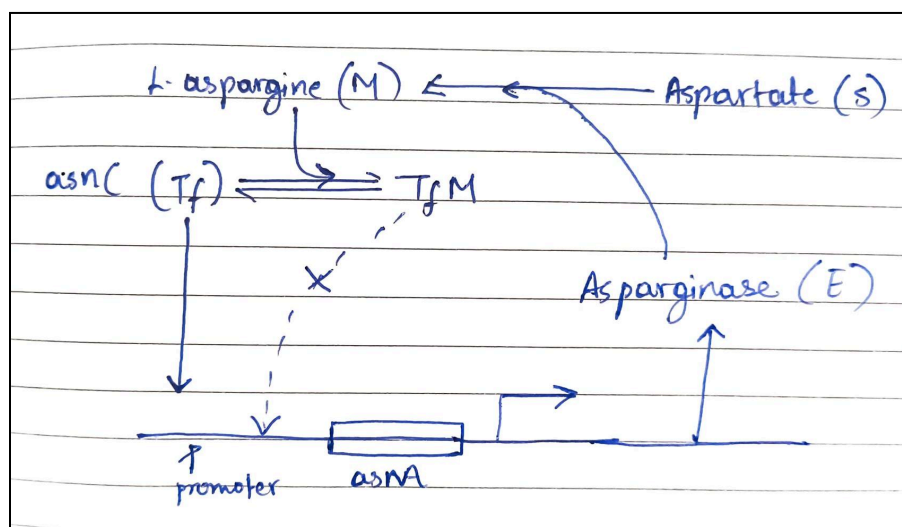 L-aspargine (M)
Aspartate (S)
asnC (Tf)
TfM
X
Asparginase (E)
promoter
asnA